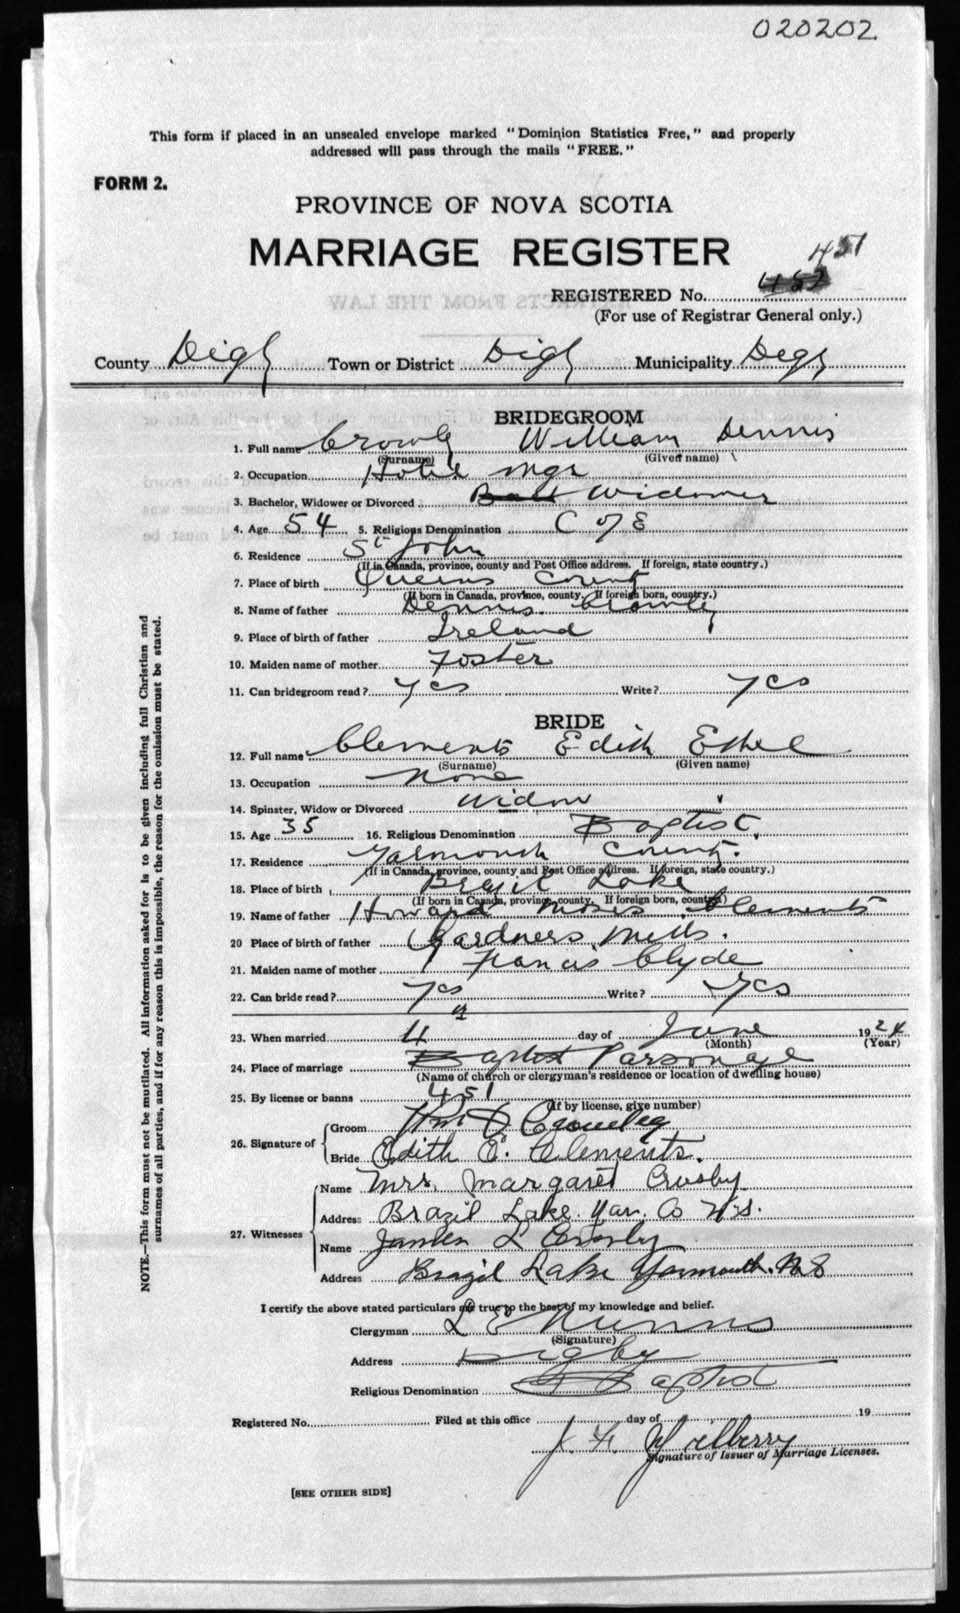 020202
This form if placed in an unsealed envelope marked "Dominion Statistics Free," and properly
addressed will pass through the mails "FREE."
FORM 2.
PROVINCE OF NOVA SCOTIA
MARRIAGE REGISTER
451
REGISTERED No. 452
(For use of Registrar General only.)
County Digby Town or District Digby Municipality Digby
BRIDEGROOM
1. Full name Crowly William Dennis
(Surname) (Given name)
2. Occupation Hotel Mgr
3. Bachelor, Widower or Divorced Widower
4. Age 54 5. Religious Denomination C of E
6. Residence St John
(If in Canada, province, county and Post Office address. If foreign, state country.)
7. Place of birth Queens County
(If born in Canada, province, county. If foreign born, country.)
8. Name of father Dennis Crowly
9. Place of birth of father Ireland
10. Maiden name of mother Foster
11. Can bridegroom read? yes Write? yes
BRIDE
12. Full name Clements Edith Ethel
(Surname) (Given name)
13. Occupation None
14. Spinster, Widow or Divorced Widow
15. Age 35 16. Religious Denomination Baptist.
17. Residence Yarmouth County.
(If in Canada, province, county and Post Office address. If foreign, state country.)
18. Place of birth Brazil Lake
(If born in Canada, province, county. If foreign born, country.)
19. Name of father Howard Moses Clements
20 Place of birth of father Gardners Mills.
21. Maiden name of mother Francis Clyde
22. Can bride read? yes Write? yes
23. When married 4 day of June 1924
(Month) (Year)
24. Place of marriage Baptist Parsonage
(Name of church or clergyman's residence or location of dwelling house)
25. By license or banns 451
(If by license, give number)
26. Signature of
Groom Wm D Crowley
Bride Edith E. Clements.
27. Witnesses
Name Mrs. Margaret Crosby
Address Brazil Lake Yar. Co N.S.
Name L Crosby
Address Brazil Lake Yarmouth. N S
I certify the above stated particulars are true to the best of my knowledge and belief.
Clergyman L E Nunns
(Signature)
Address Digby
Religious Denomination Baptist
Registered No. Filed at this office day of 19
J. F.
Signature of Issuer of Marriage Licenses.
[SEE OTHER SIDE]
NOTE.—This form must not be mutilated. All information asked for is to be given including full Christian and
surnames of all parties, and if for any reason this is impossible, the reason for the omission must be stated.